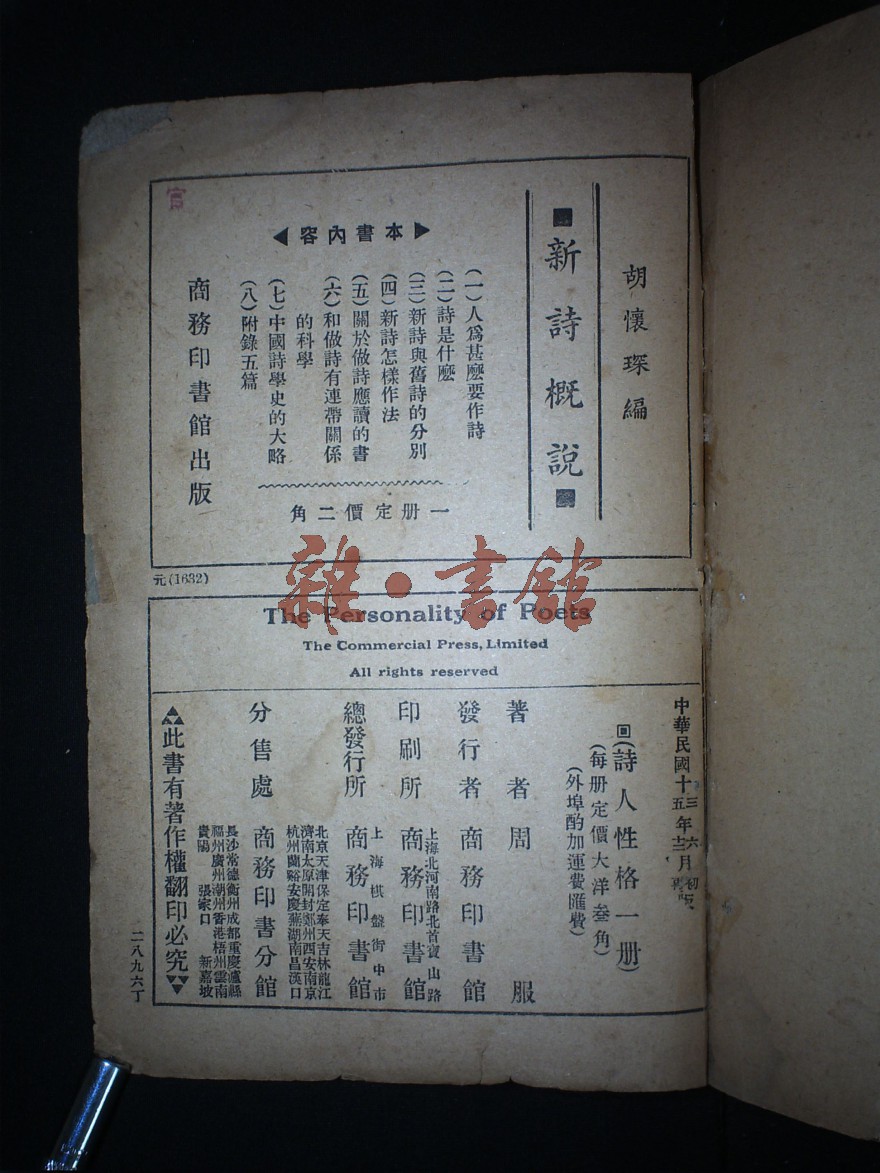 胡懷琛編
新詩概說
▶本書內容◀
(一)人爲甚麽要作詩
(二)詩是什麽
(三)新詩與舊詩的分別
(四)新詩怎樣作法
(五)關於做詩應讀的書
(六)和做詩有連帶關係
的科學
(七)中國詩學史的大略
(八)附錄五篇
一册定價二角
商務印書館出版
官
元(1632)
雜·書館
The Personality of Poets
The Commercial Press, Limited
All rights reserved
中華民國十三年六月初版
五 十二 再版
(詩人性格一册)
(每册定價大洋叁角)
(外埠酌加運費匯費)
著者 周服
發行者 商務印書館
上海北河南路北首寶山路
印刷所 商務印書館
上海棋盤街中市
總發行所 商務印書館
北京天津保定奉天吉林龍江
濟南太原開封鄭州西安南京
杭州蘭谿安慶蕪湖南昌漢口
分售處 商務印書分館
長沙常德衡州成都重慶瀘縣
福州廣州潮州香港梧州雲南
貴陽 張家口 新嘉坡
此書有著作權翻印必究
二八九六丁